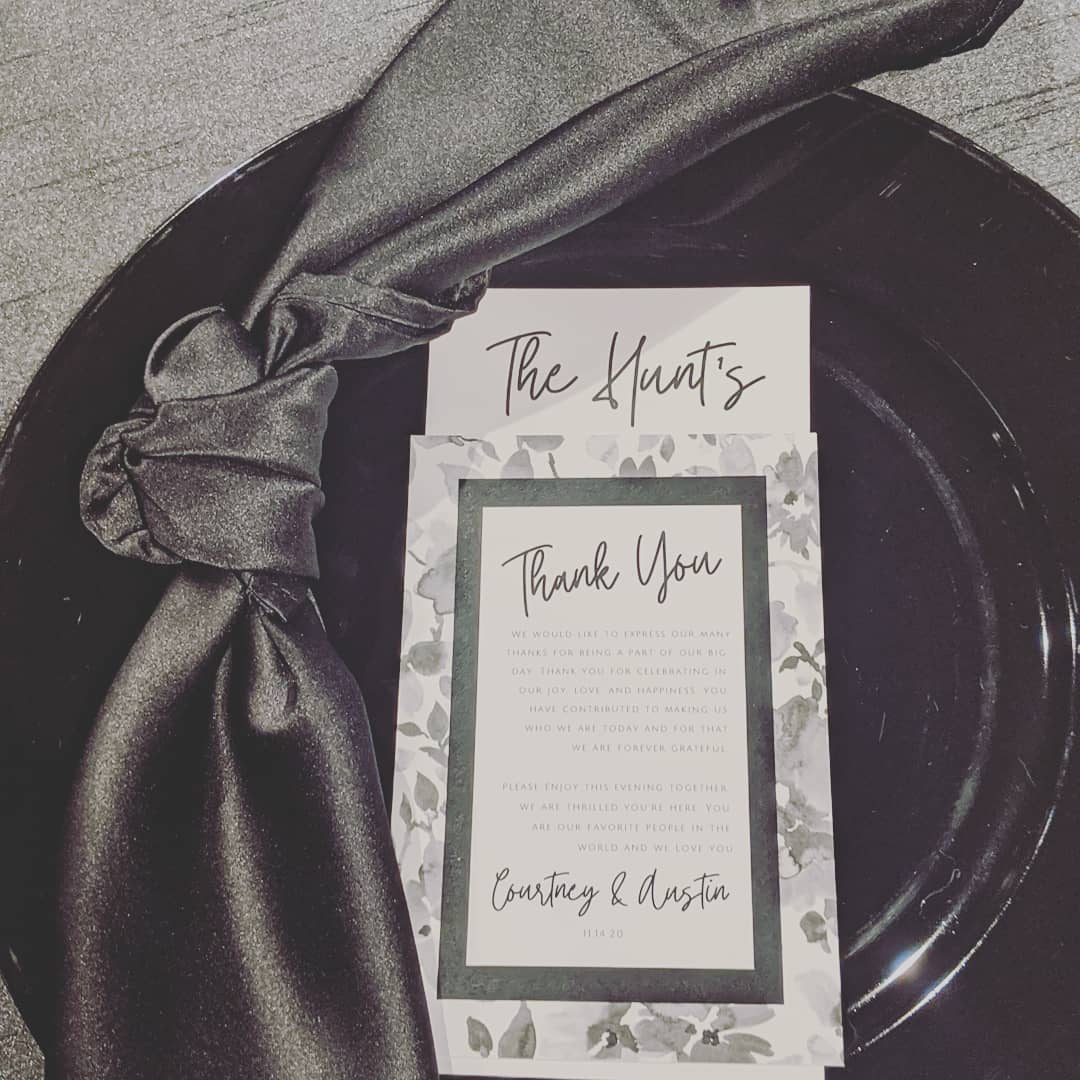 The Hunt's
Thank You
WE WOULD LIKE TO EXPRESS OUR MANY
THANKS FOR BEING A PART OF OUR BIG
DAY. THANK YOU FOR CELEBRATING IN
OUR JOY, LOVE, AND HAPPINESS. YOU
HAVE CONTRIBUTED TO MAKING US
WHO WE ARE TODAY AND FOR THAT
WE ARE FOREVER GRATEFUL.
PLEASE ENJOY THIS EVENING TOGETHER.
WE ARE THRILLED YOU'RE HERE. YOU
ARE OUR FAVORITE PEOPLE IN THE
WORLD AND WE LOVE YOU
Courtney & Austin
11.14.20